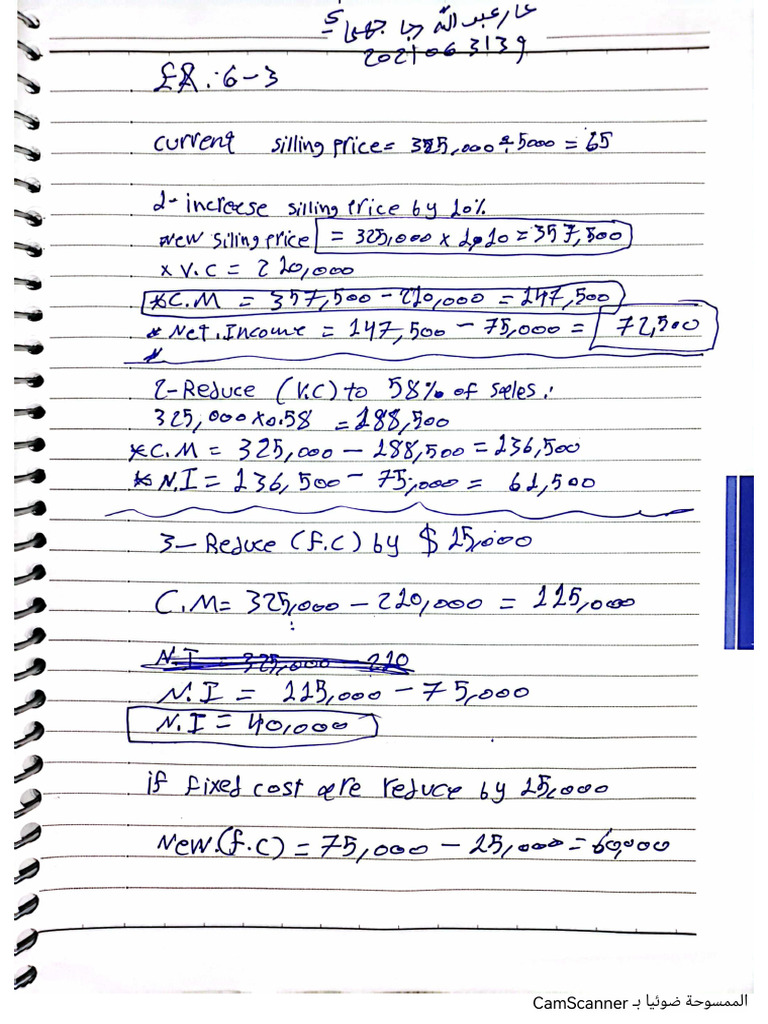 عبدالله
202106 3139
EX.: 6-3
current silling price = 325,000 ÷ 5000 = 65
1- increase silling Price by 10%
new silling price = 325,000 x 1,10 = 357,500
x V.C = 210,000
*C.M = 357,500 - 210,000 = 147,500
* Net.Income = 147,500 - 75,000 = 72,500
2- Reduce (V.C) to 58% of sales:
325,000 x 0.58 = 188,500
*C.M = 325,000 - 188,500 = 136,500
* N.I = 136,500 - 75,000 = 61,500
3- Reduce (f.C) by $ 15,000
C.M = 325,000 - 210,000 = 115,000
N.I = 325,000 - 210
N.I = 115,000 - 75,000
N.I = 40,000
if fixed cost are reduce by 15,000
New.(f.C) = 75,000 - 15,000 = 60,000
الممسوحة ضوئيا بـ CamScanner